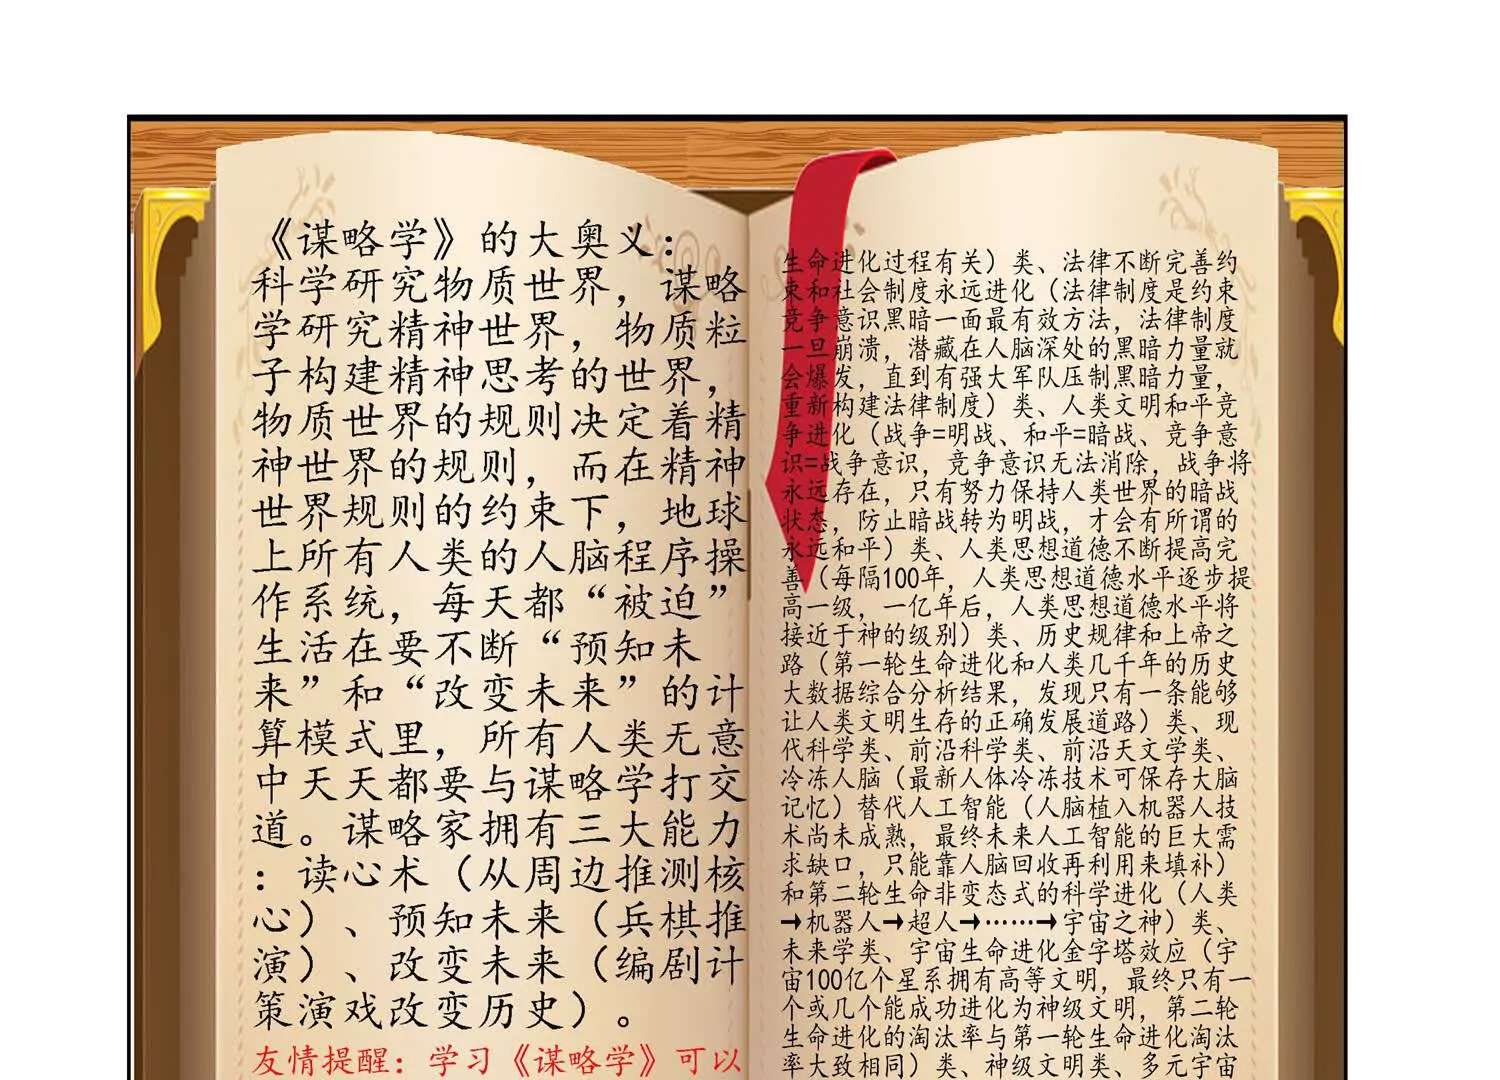 《谋略学》的大奥义：
科学研究物质世界，谋略
学研究精神世界，物质粒
子构建精神思考的世界，
物质世界的规则决定着精
神世界的规则，而在精神
世界规则的约束下，地球
上所有人类的人脑程序操
作系统，每天都“被迫”
生活在要不断“预知未
来”和“改变未来”的计
算模式里，所有人类无意
中天天都要与谋略学打交
道。谋略家拥有三大能力
：读心术（从周边推测核
心）、预知未来（兵棋推
演）、改变未来（编剧计
策演戏改变历史）。
友情提醒：学习《谋略学》可以
生命进化过程有关）类、法律不断完善约
束和社会制度永远进化（法律制度是约束
竞争意识黑暗一面最有效方法，法律制度
一旦崩溃，潜藏在人脑深处的黑暗力量就
会爆发，直到有强大军队压制黑暗力量，
重新构建法律制度）类、人类文明和平竞
争进化（战争=明战、和平=暗战、竞争意
识=战争意识，竞争意识无法消除，战争将
永远存在，只有努力保持人类世界的暗战
状态，防止暗战转为明战，才会有所谓的
永远和平）类、人类思想道德不断提高完
善（每隔100年，人类思想道德水平逐步提
高一级，一亿年后，人类思想道德水平将
接近于神的级别）类、历史规律和上帝之
路（第一轮生命进化和人类几千年的历史
大数据综合分析结果，发现只有一条能够
让人类文明生存的正确发展道路）类、现
代科学类、前沿科学类、前沿天文学类、
冷冻人脑（最新人体冷冻技术可保存大脑
记忆）替代人工智能（人脑植入机器人技
术尚未成熟，最终未来人工智能的巨大需
求缺口，只能靠人脑回收再利用来填补）
和第二轮生命非变态式的科学进化（人类
→机器人→超人→……→宇宙之神）类、
未来学类、宇宙生命进化金字塔效应（宇
宙100亿个星系拥有高等文明，最终只有一
个或几个能成功进化为神级文明，第二轮
生命进化的淘汰率与第一轮生命进化淘汰
率大致相同）类、神级文明类、多元宇宙